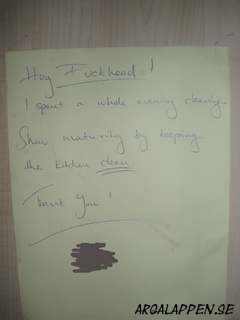 Hey Fuckhead!
I spent a whole evening cleaning.
Show maturity by keeping
the kitchen clean.
Thank You!
ARGALAPPEN.SE